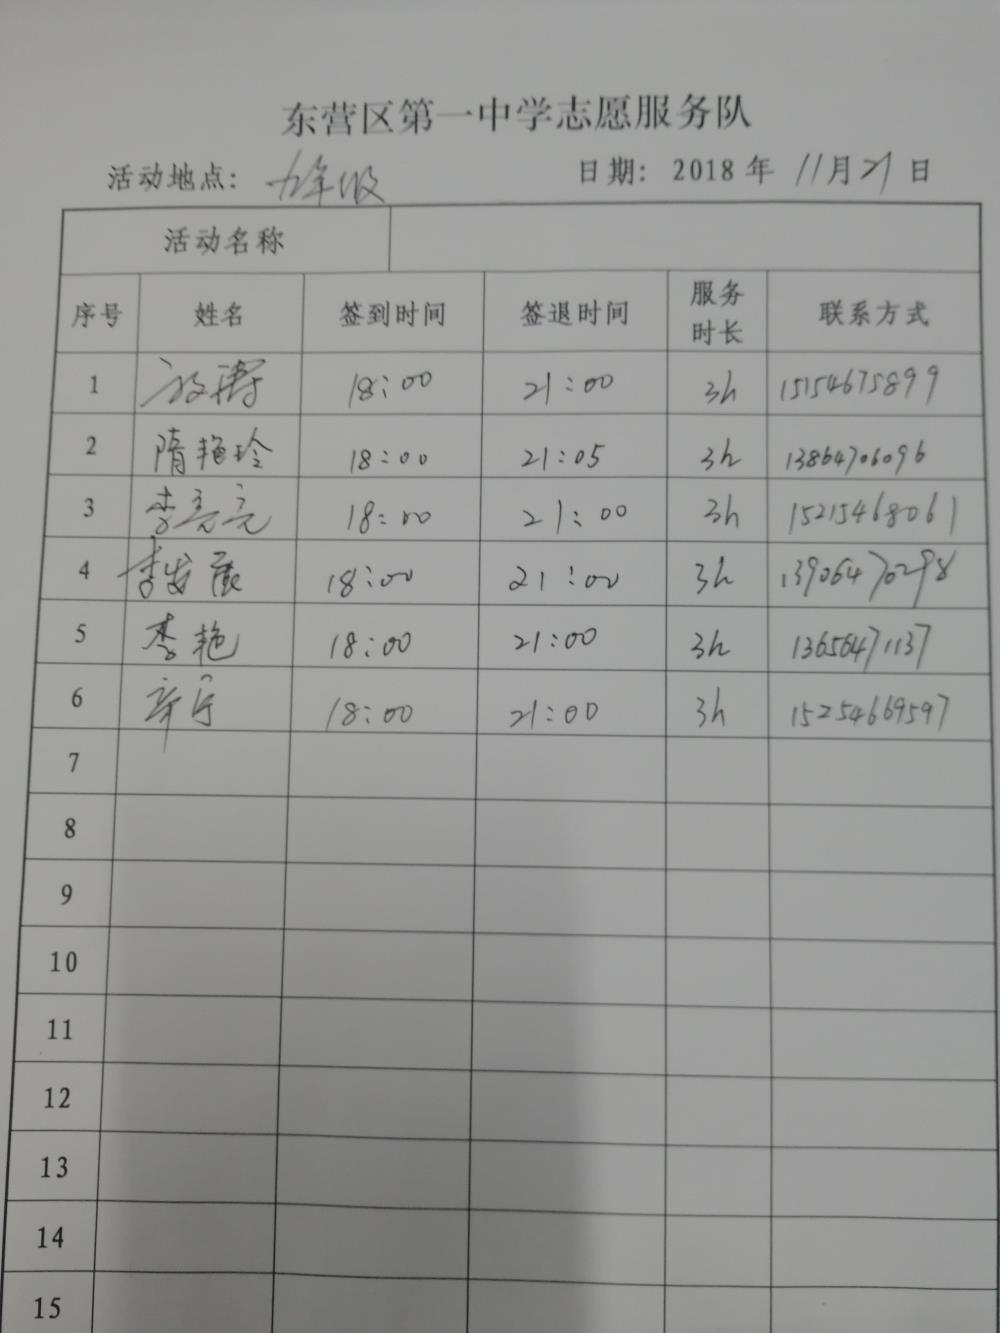 东营区第一中学志愿服务队
活动地点: 九年级 日期: 2018 年 11月21日
活动名称
序号 姓名 签到时间 签退时间 服务时长 联系方式
1 18:00 21:00 3h 15154675899
2 隋艳玲 18:00 21:05 3h 13864706096
3 李亮亮 18:00 21:00 3h 15215468061
4 李发展 18:00 21:00 3h 13906470298
5 李艳 18:00 21:00 3h 13656471137
6 18:00 21:00 3h 15254669597
7
8
9
10
11
12
13
14
15